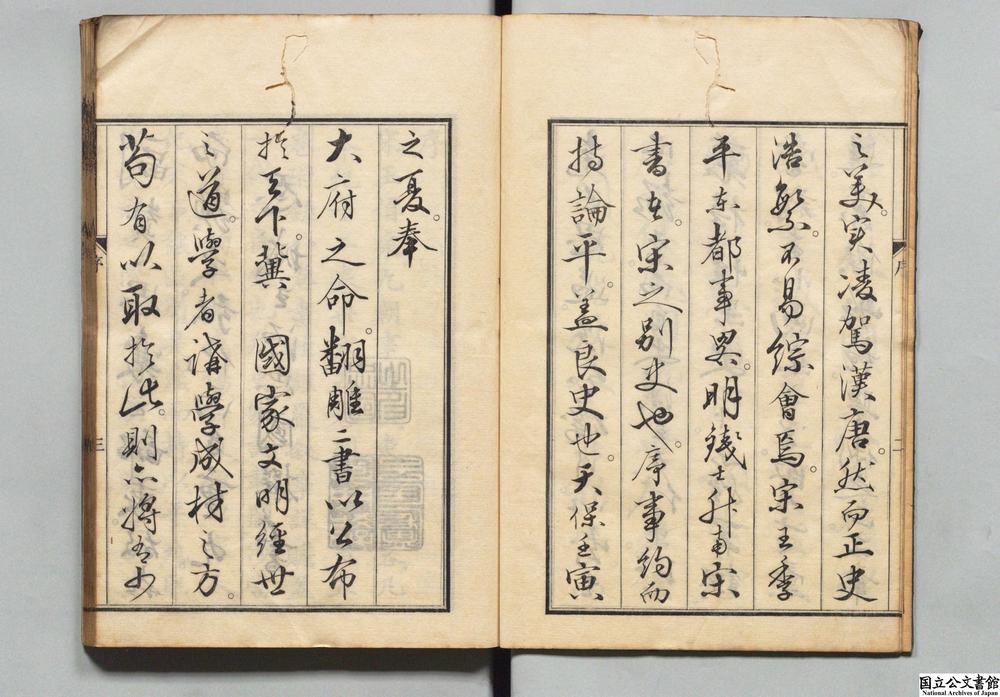 之美。実凌駕漢唐。然而正史
浩繁。不易綜會焉。宋王季
平東都事畧。明錢士升南宋
書在。宋之別史也。序事約而
持論平。盖良史也。天保壬寅
之夏。奉
大府之命。翻雕二書以公布
於天下。冀國家文明經世
之道。學者講學成材之方。
苟有以取於此。則亦將有少
序
二
序
三
国立公文書館
National Archives of Japan